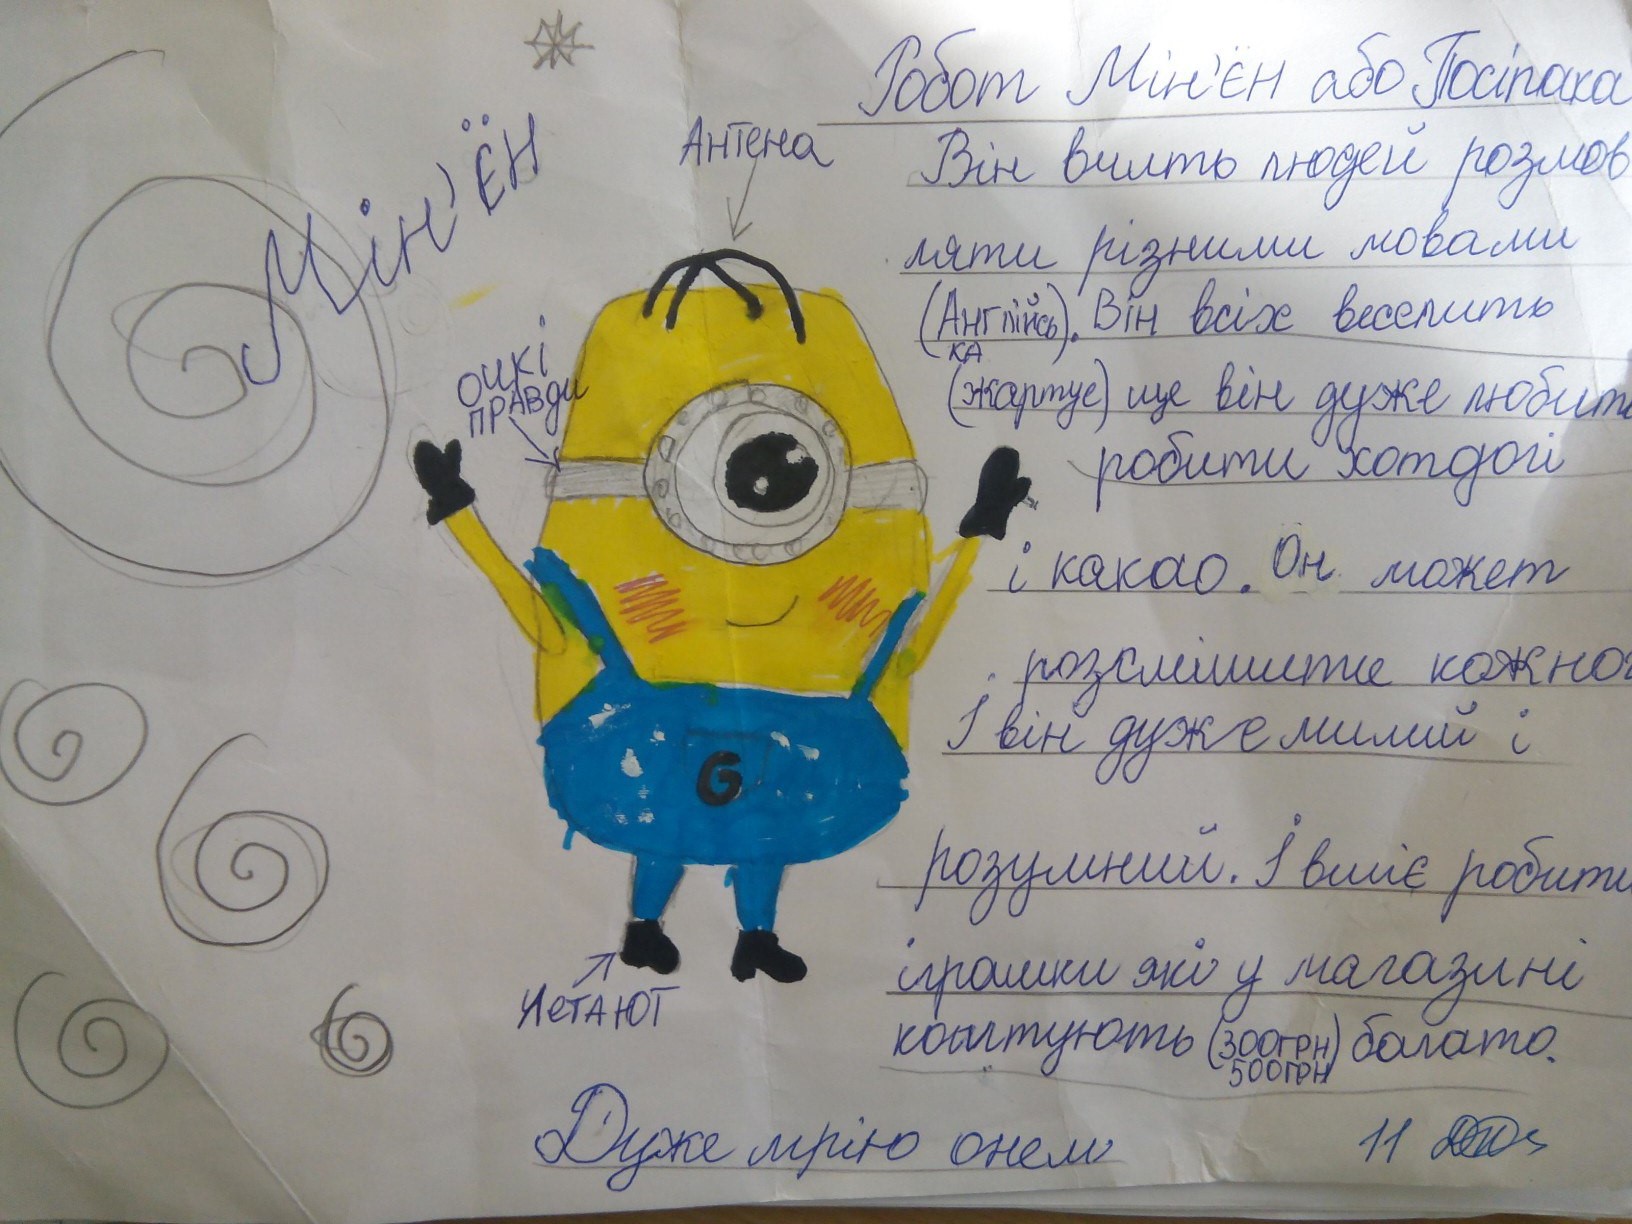 Мін'ЄН
Антена
очкі
правди
летают
G
Робот Мін'ЄН або Посіпака
Він вчить людей розмов
ляти різними мовами
(Англійсь). Він всіх веселить
ка
(жартує) ще він дуже любить
робити хотдогі
і какао. Он может
розсмішите кожног
І він дуже милий і
розумний. І вміє робити
іграшки які у магазині
коштують (300грн) багато.
500грн
Дуже мрію онем
11